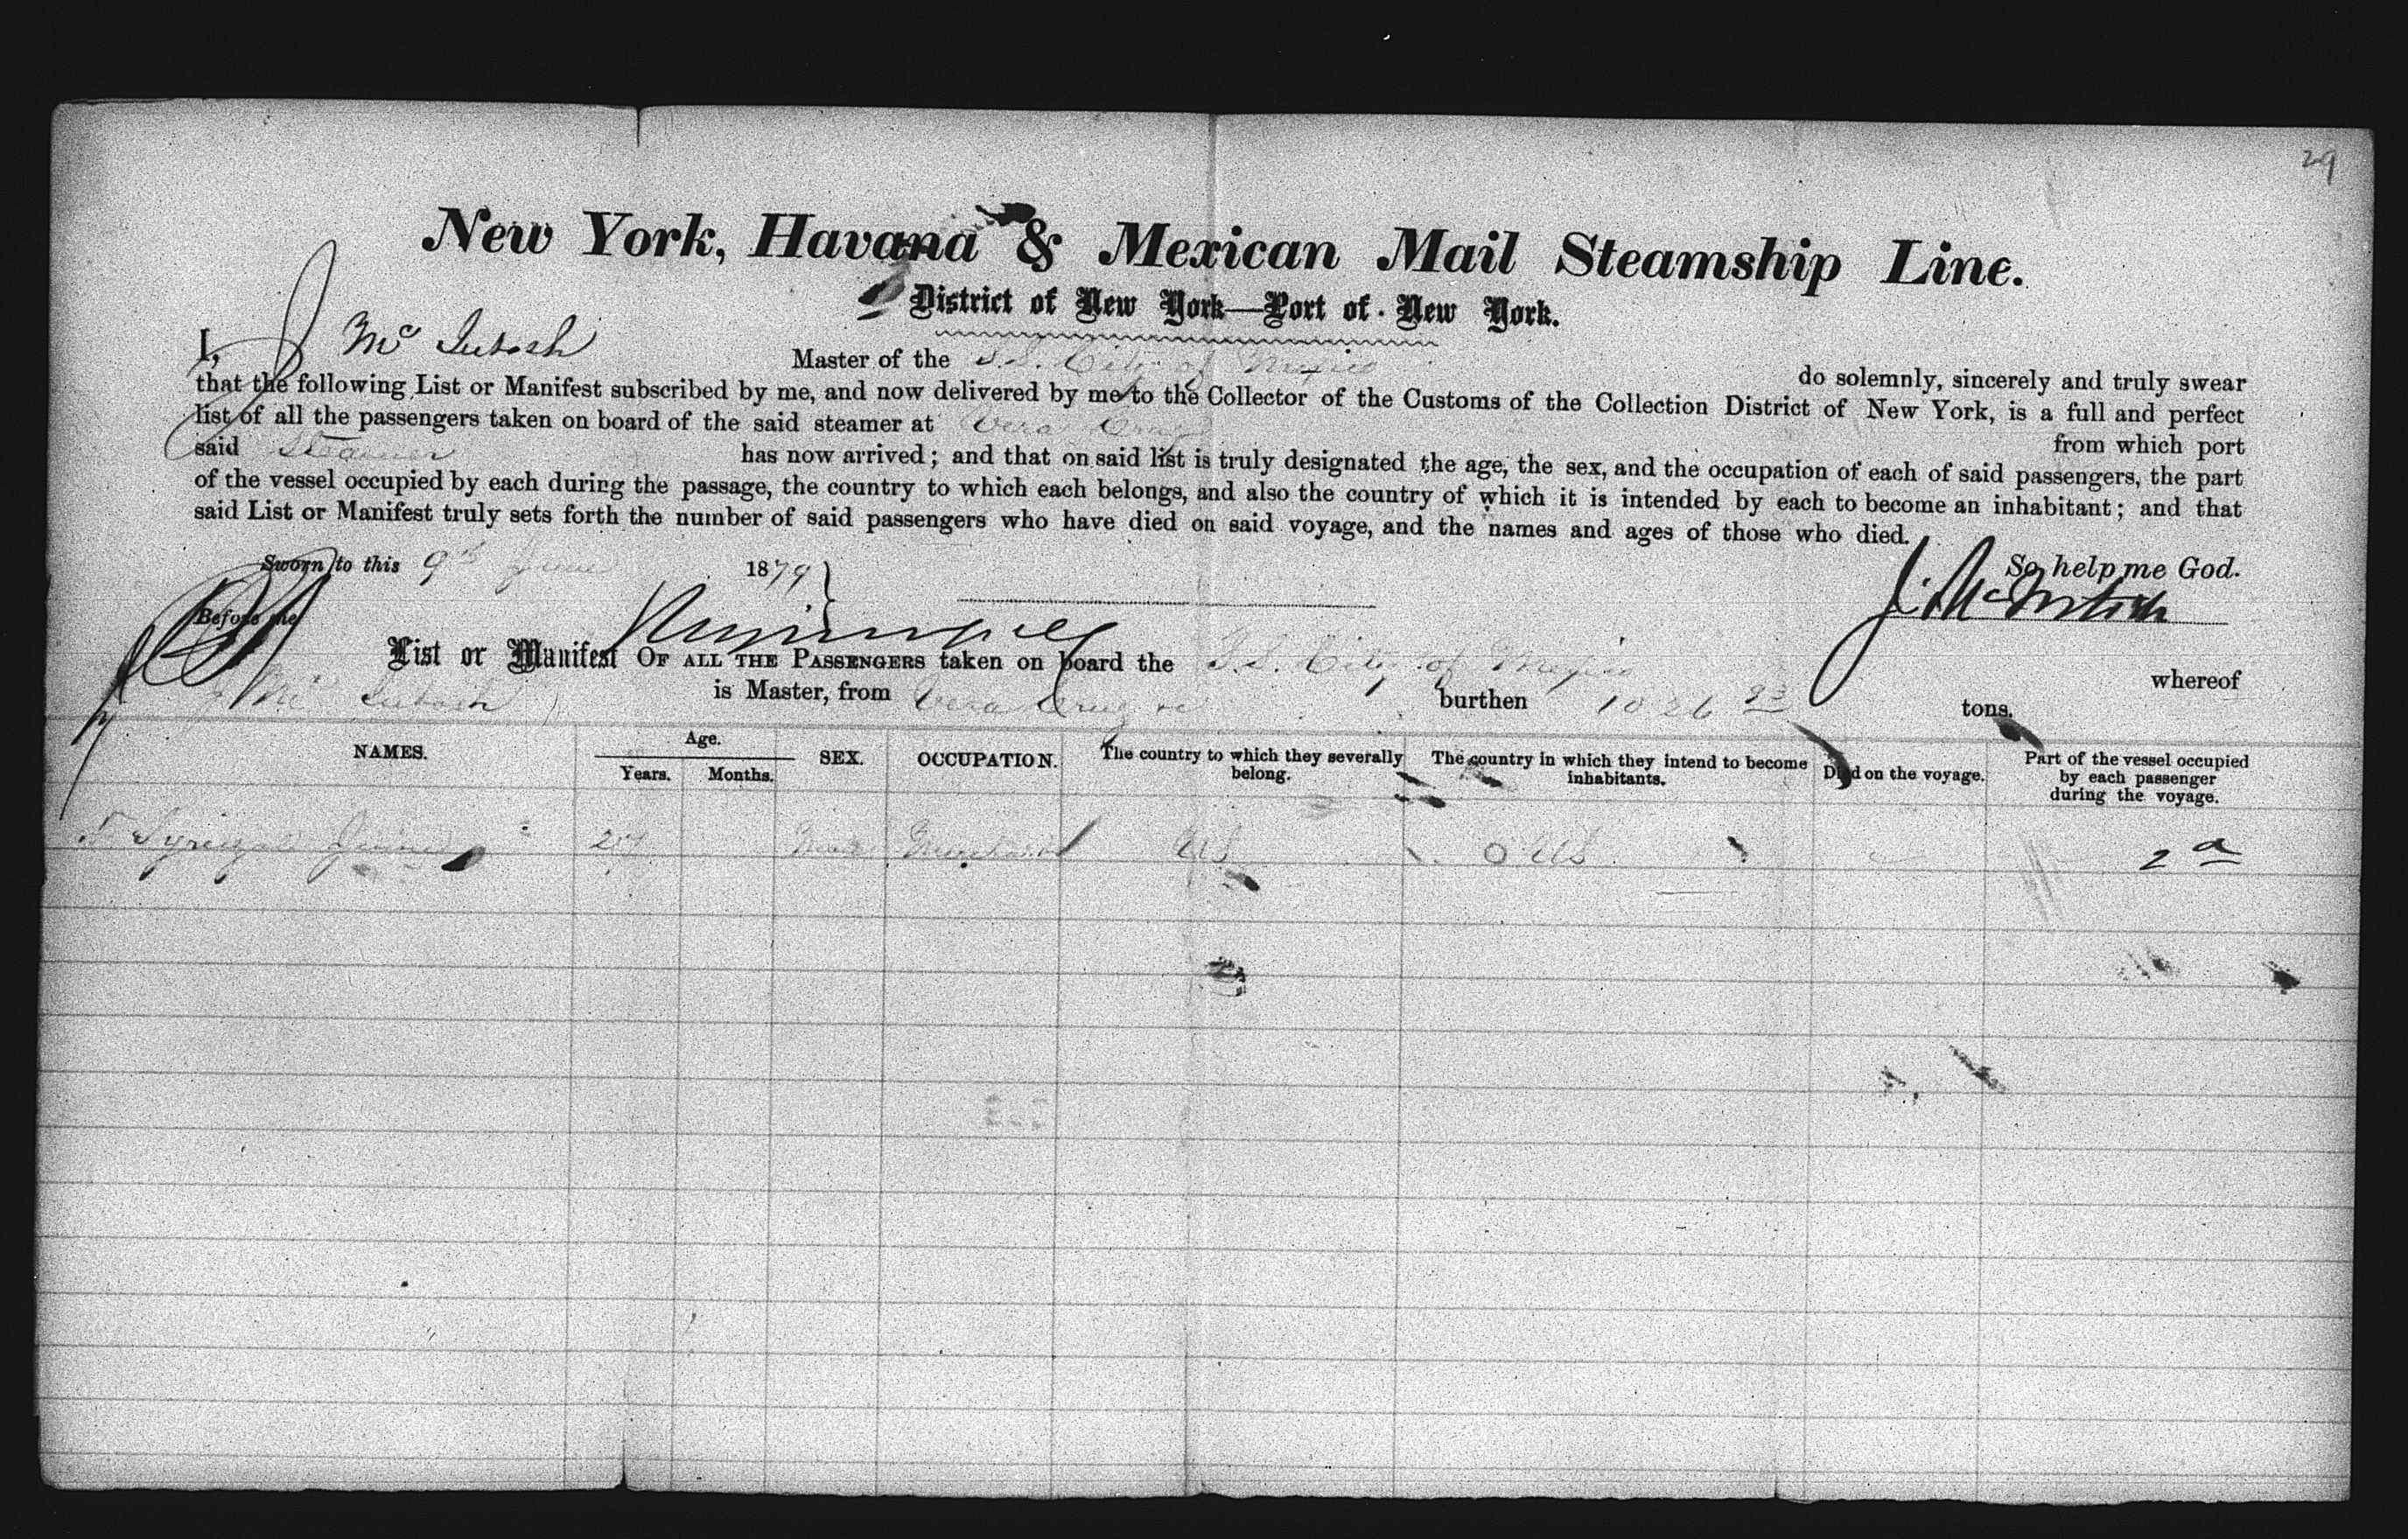 29
New York, Havana & Mexican Mail Steamship Line.
District of New York—Port of New York.
I, J Mc Intosh Master of the S.S. City of Mexico do solemnly, sincerely and truly swear
that the following List or Manifest subscribed by me, and now delivered by me to the Collector of the Customs of the Collection District of New York, is a full and perfect
list of all the passengers taken on board of the said steamer at Vera Cruz from which port
said Steamer has now arrived; and that on said list is truly designated the age, the sex, and the occupation of each of said passengers, the part
of the vessel occupied by each during the passage, the country to which each belongs, and also the country of which it is intended by each to become an inhabitant; and that
said List or Manifest truly sets forth the number of said passengers who have died on said voyage, and the names and ages of those who died.
Sworn to this 9th June 1879 So help me God.
Before me J. McIntosh
List or Manifest OF ALL THE PASSENGERS taken on board the S.S. City of Mexico whereof
J Mc Intosh is Master, from Vera Cruz burthen 1026 tons.
NAMES. Age. Years. Months. SEX. OCCUPATION. The country to which they severally belong. The country in which they intend to become inhabitants. Died on the voyage. Part of the vessel occupied by each passenger during the voyage.
Male Merchant US US 2 a